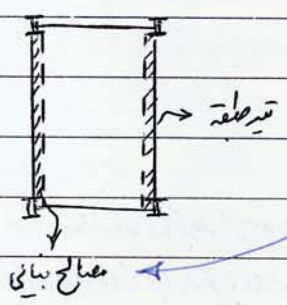 تیر طبقه
مصالح بنایی